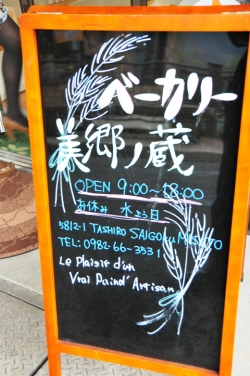 ベーカリー
美郷ノ蔵
OPEN 9:00~18:00
お休み 水よう日
5812-1 TASHIRO SAIGOKU MISATO
TEL: 0982-66-3531
Le Plaisir d'un
Vrai Paind' Artisan